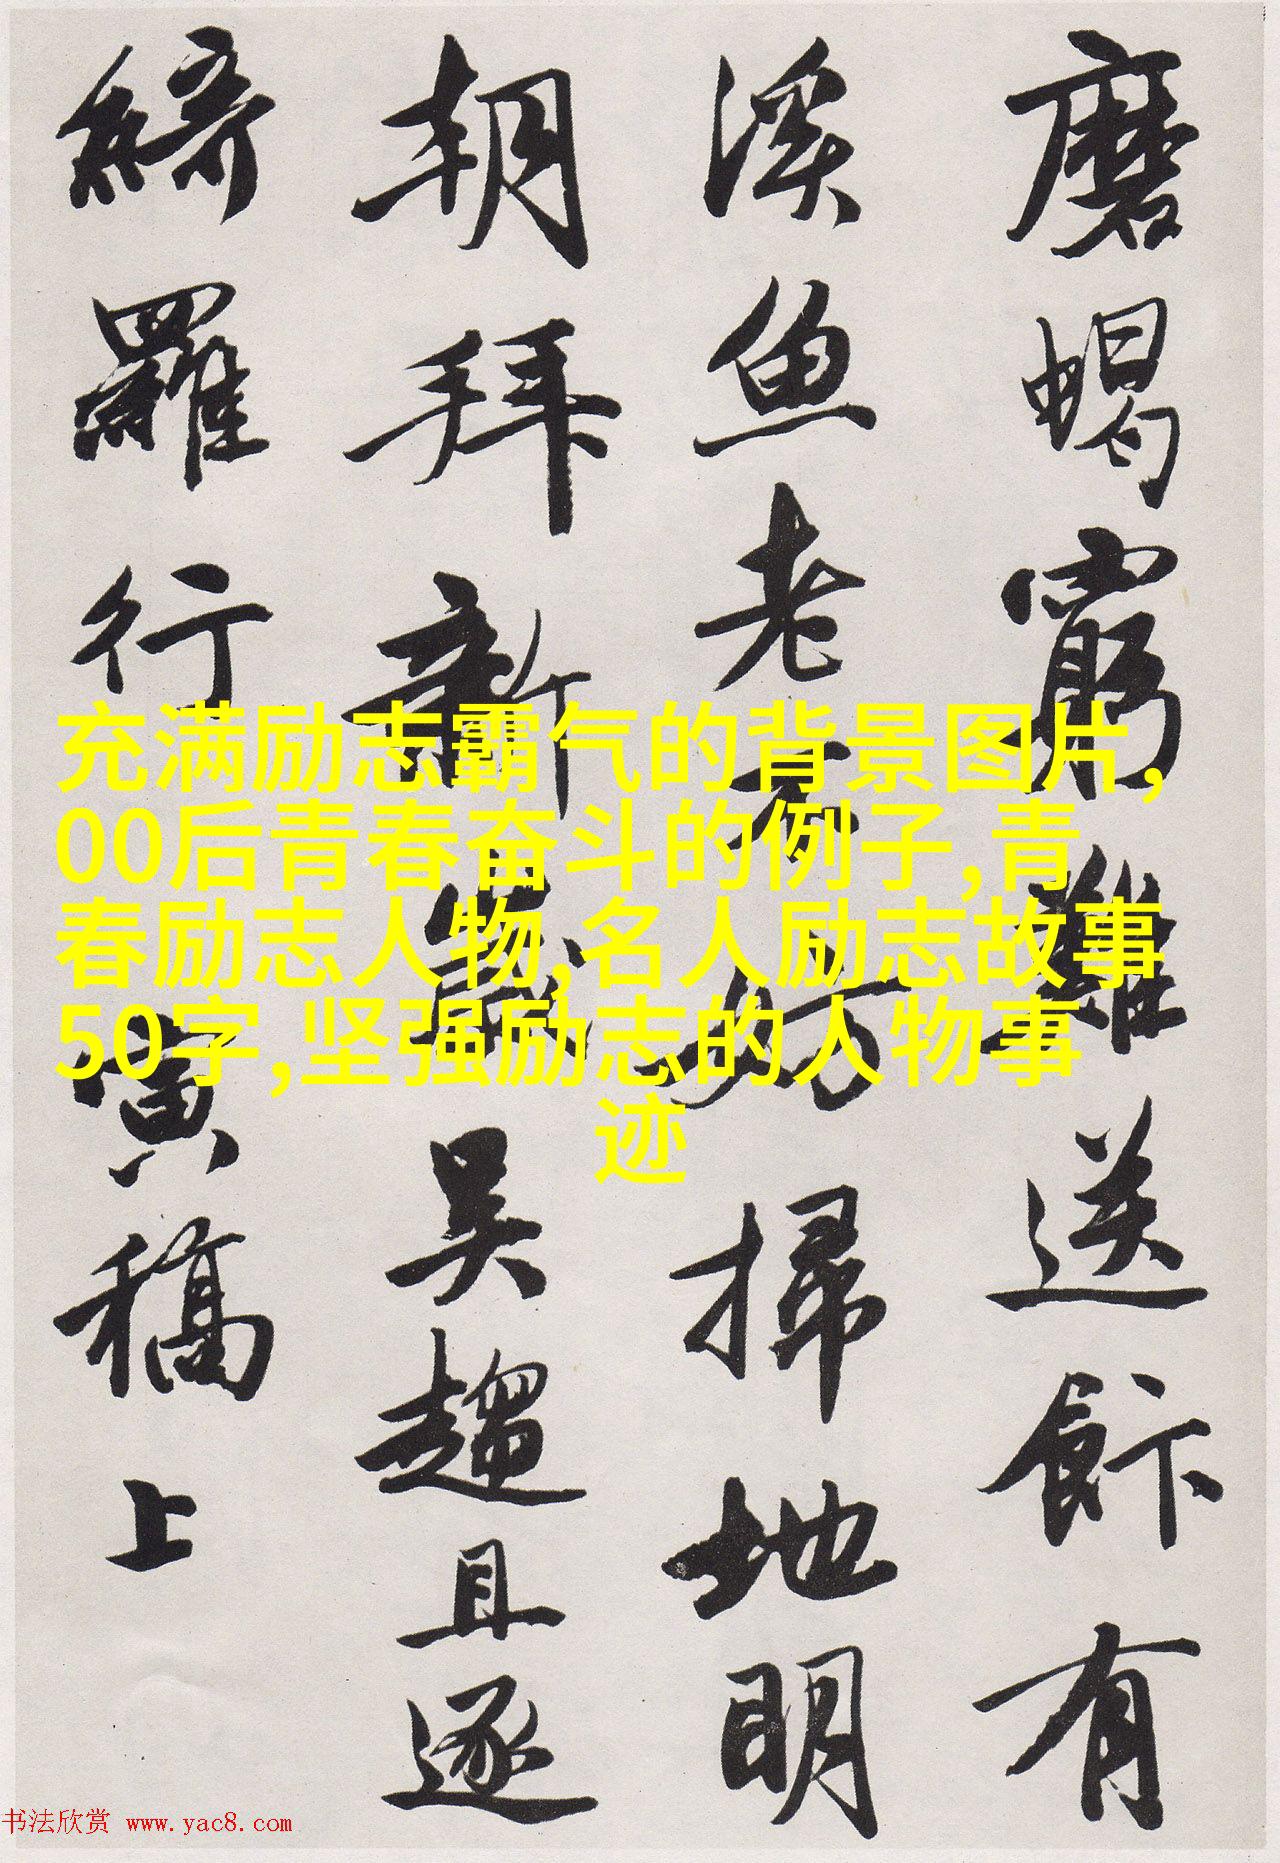 磨蝎窮難送飰有
溪魚老去妨掃地明
朝拜新歲吳趨且逐
綺羅行寅稿上
充满励志霸气的背景图片,
00后青春奋斗的例子,青
春励志人物,名人励志故事
50字,坚强励志的人物事
迹
书法欣赏 www.yac8.com